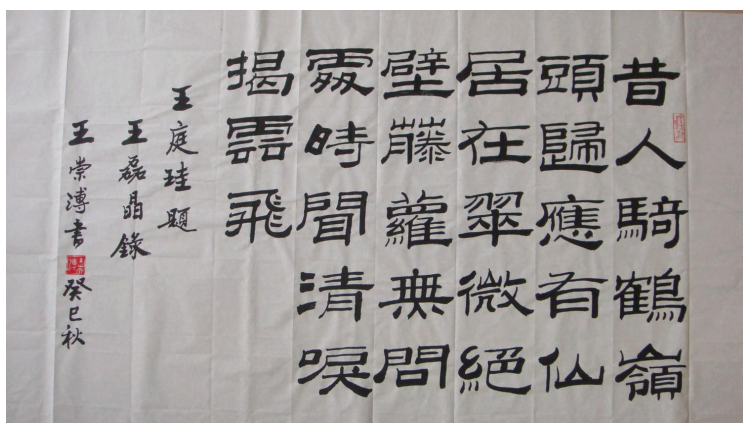 昔人騎鶴嶺
頭歸應有仙
居在翠微絕
壁藤蘿無問
處時聞清唳
揭雲飛
王庭珪題
王磊晶錄
王崇溥書 癸巳秋